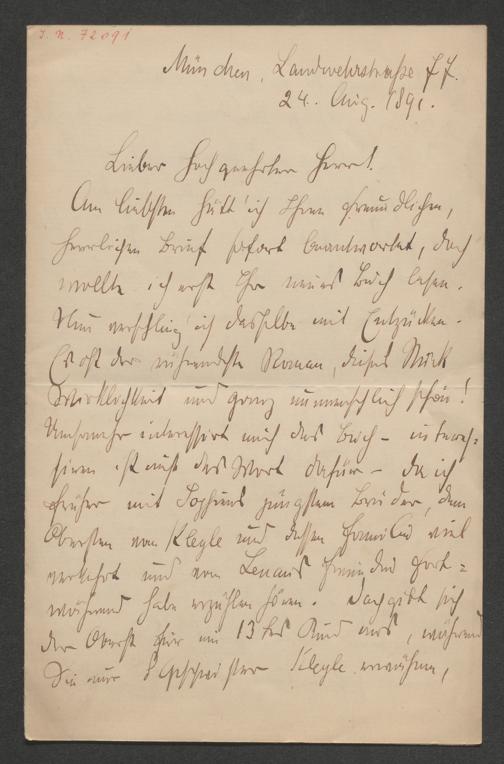 I. N. 72091
München, Landwehrstraße 77.
24. Aug. 1891.
Lieber hochgeehrter Herr!
Am liebsten hätt' ich Ihren freundlichen,
herrlichen Brief sofort beantwortet, doch
wollte ich erst Ihr neues Buch lesen.
Nun verschling' ich dasselbe mit Entzücken.
Es ist der rührendste Roman, dieses Stück
Wirklichkeit und ganz unmenschlich schön!
Umsomehr interessirt mich das Buch – interes-
siren ist nicht das Wort dafür – da ich
früher mit Sophiens jüngstem Bruder, dem
Obersten von Kleyle und dessen Familie viel
verkehrt und von Lenaus Freunden fort-
während habe erzählen hören. Doch gibt sich
der Oberst für ein 13tes Kind aus, während
Sie nur 8 Geschwister Kleyle erwähnen,